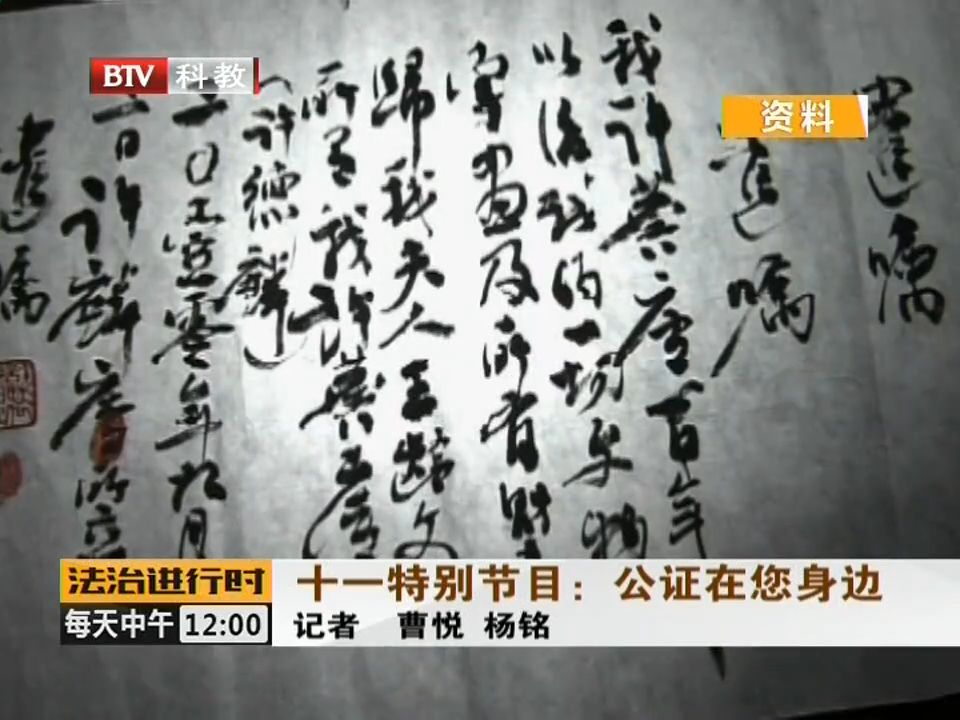 BTV 科教
资料
遗嘱
遗嘱
我许麐庐百年
以后我的一切事物
字画及所有财
归我夫人王龄文
所有我许麐庐
许德麟
零年九月
日许麟庐时
遗嘱
法治进行时
每天中午 12:00
十一特别节目：公证在您身边
记者 曹悦 杨铭